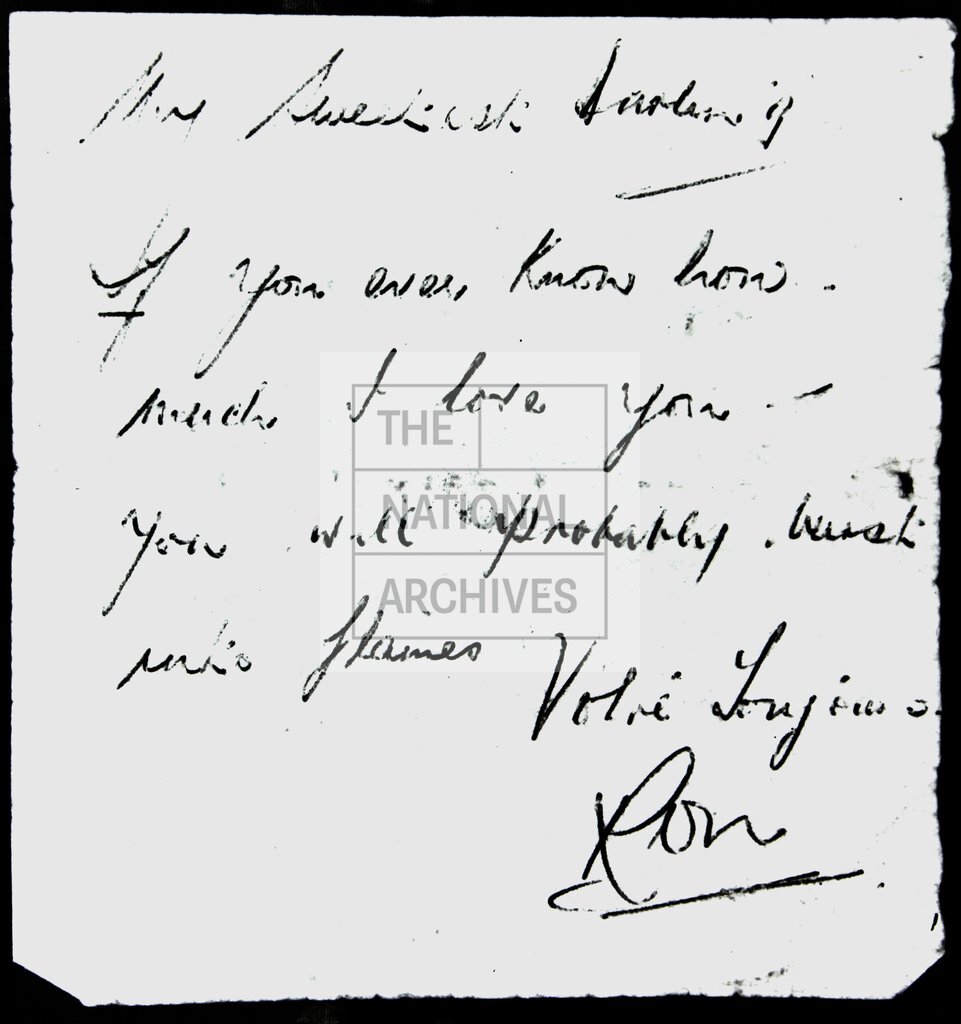 My Sweetest Darling
If you ever know how
much I love you -
you will probably burst
into flames
Votré Toujours
Ron
THE
NATIONAL
ARCHIVES